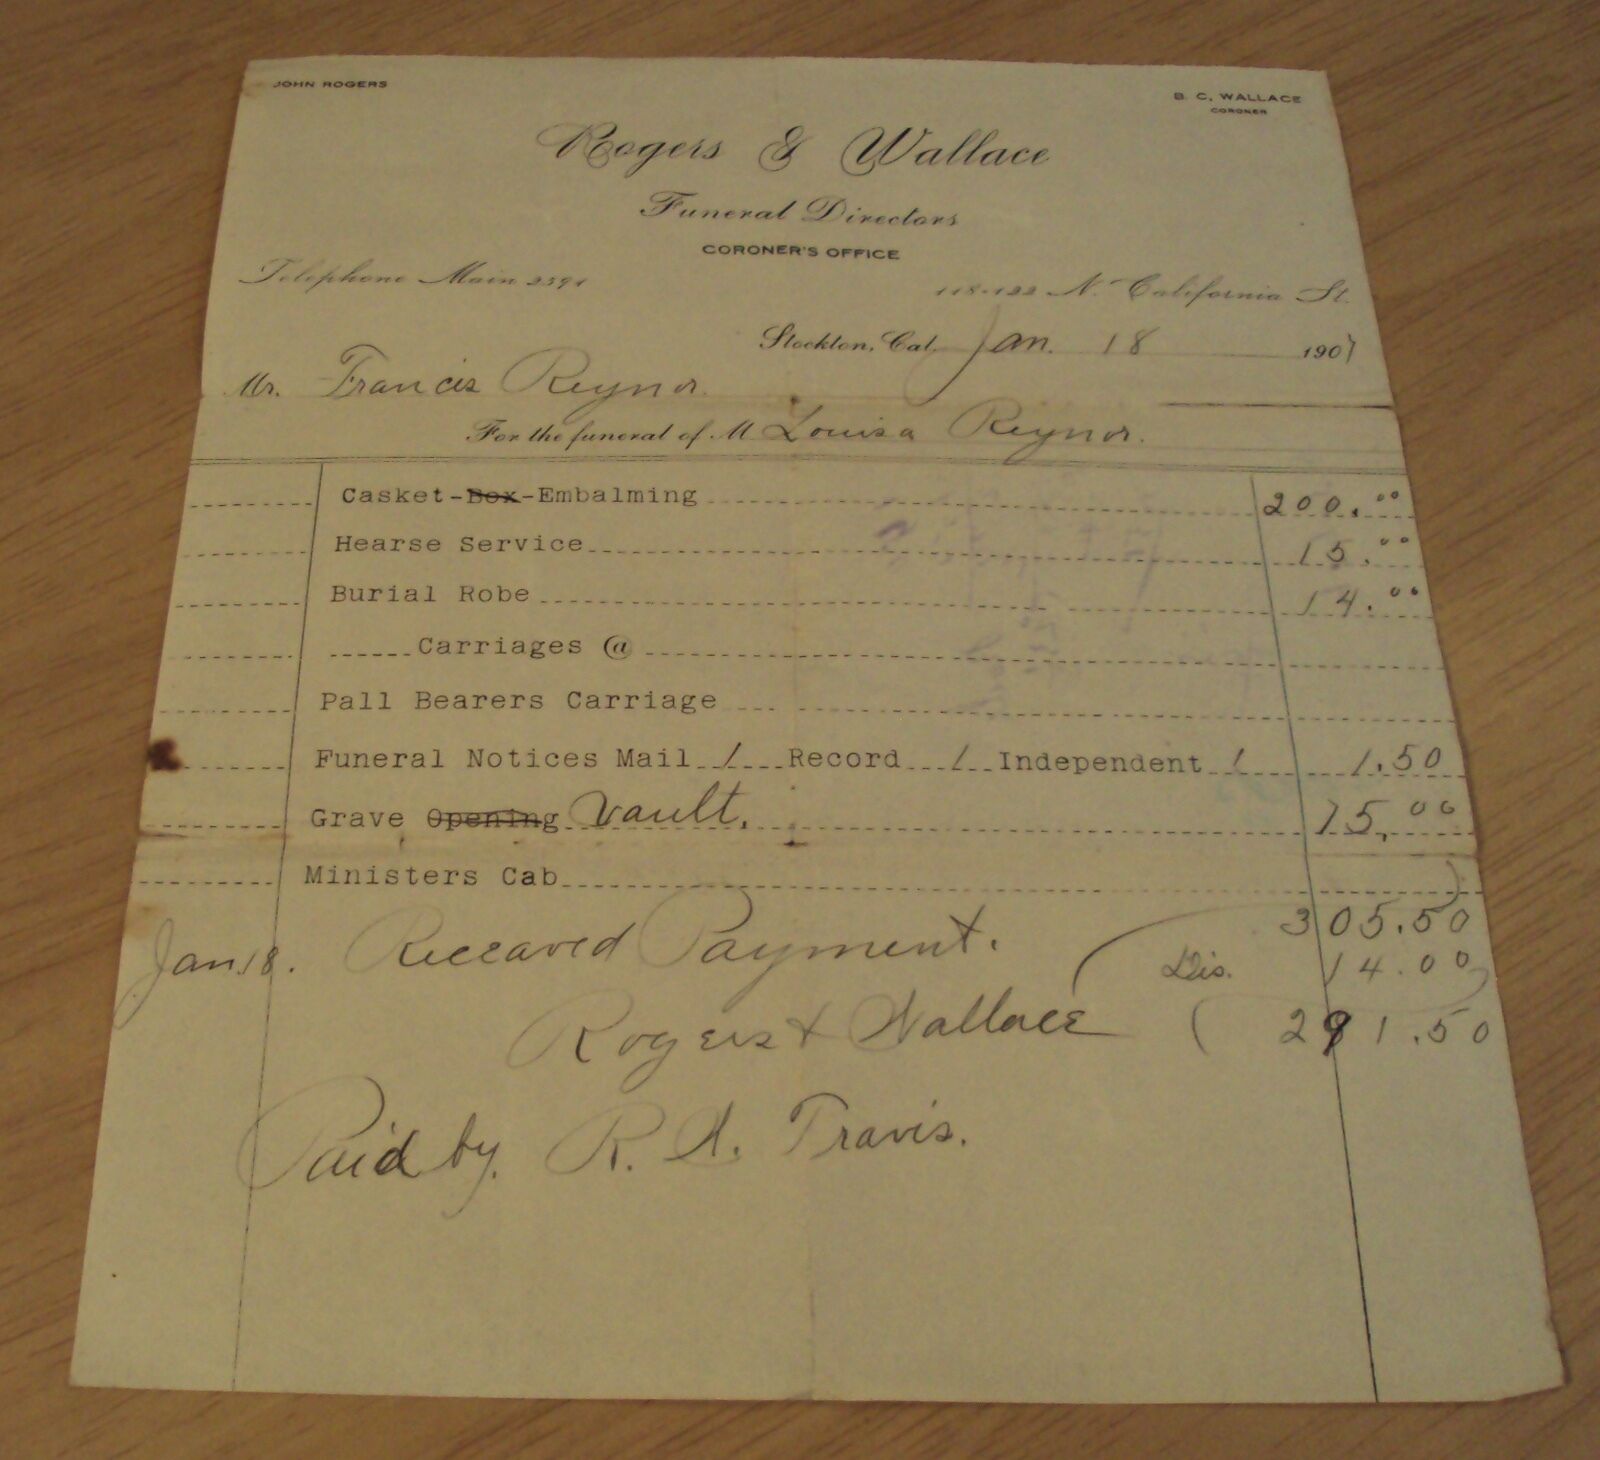 JOHN ROGERS
B. C. WALLACE
CORONER
Rogers & Wallace
Funeral Directors
CORONER'S OFFICE
Telephone Main 2591
118-122 N. California St.
Stockton, Cal. Jan. 18 1907
Mr. Francis Reynor.
For the funeral of M Louisa Reynor.
Casket-Box-Embalming 200.00
Hearse Service 15.00
Burial Robe 14.00
Carriages @
Pall Bearers Carriage
Funeral Notices Mail 1 Record 1 Independent 1 1.50
Grave Opening Vault. 75.00
Ministers Cab
305.50
Jan. 18. Received Payment. Dis. 14.00
Rogers & Wallace 291.50
Paid by. R. Travis.